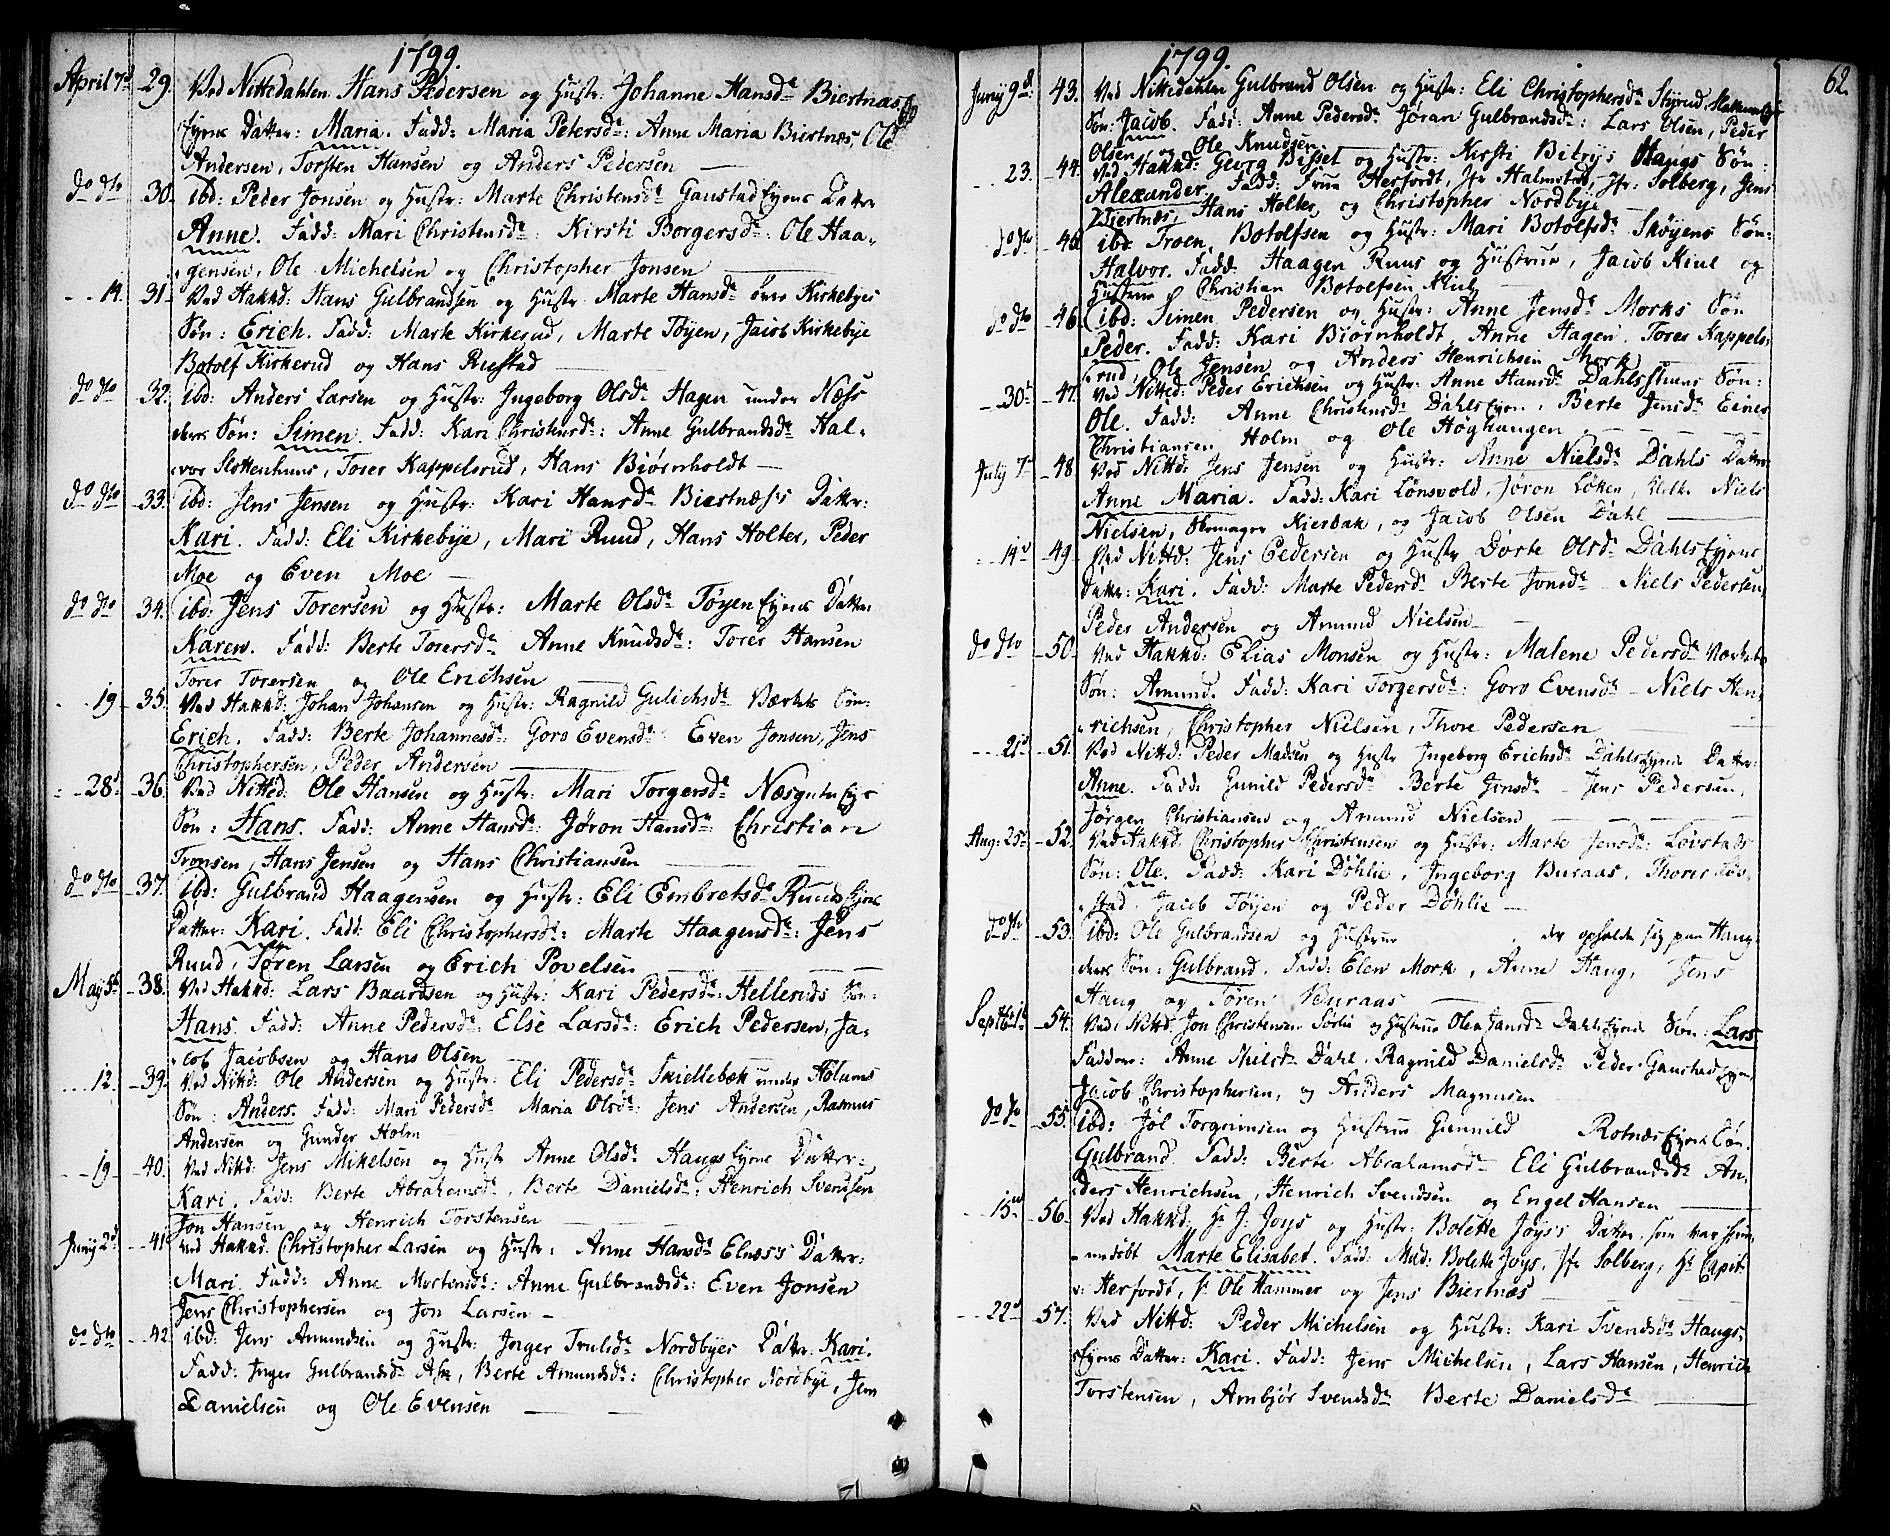 1799.
April 7d 29. Ved Nittedahlen Hans Pedersen og Hustr: Johanne Hansd: Biertnæs
Eyens Datter: Maria. Fadd: Maria Petersd: Anne Maria Biertnæs, Ole
Andersen, Torsten Hansen og Anders Pedersen
do dto 30. ibd: Peder Jonsen og Hustr: Marte Christensd: Gaustad Eyens Datter
Anne. Fadd: Mari Christensd: Kirsti Borgersd: Ole Haa„
„gensen, Ole Michelsen og Christopher Jonsen
14. 31. Ved Hakkd: Hans Gulbrandsen og Hustr: Marte Hansd: øvre Kirkebyes
Søn: Erich. Fadd: Marte Kirkerud, Marte Töyen, Jacob Kirkebye
Botolf Kirkerud og Hans Rustad
do dto 32. ibd: Anders Larsen og Hustr: Ingeborg Olsd: Hagen under Næss
deres Søn: Simen. Fadd: Kari Christensd: Anne Gulbrandsd: Hal„
„vor Slattenhuus, Torer Kappelsrud, Hans Biørnholdt
do dto 33. ibd: Jens Jensen og Hustr: Kari Hansd: Biertnæss Datter:
Kari. Fadd: Eli Kirkebÿe, Mari Ruud, Hans Holter, Peder
Moe og Even Moe
do dto 34. ibd: Jens Torersen og Hustr: Marte Olsd: Töyen Eyens Datter
Karen. Fadd: Berte Torersd: Anne Knudsd: Torer Hansen
Torer Torersen og Ole Erichsen
19 35. Ved Hakkd: Johan Johansen og Hustr: Ragnild Gulichsd: Værkets Søn:
Erich. Fadd: Berte Johannesd: Goro Evensd: Even Jonsen, Jens
Christophersen, Peder Andersen
28d 36. Ved Nitted: Ole Hansen og Hustr: Mari Torgersd: Næsgutu Eye
Søn: Hans. Fadd: Anne Hansd: Jøron Hansd: Christian
Tronsen, Hans Jensen og Hans Christiansen
do dto 37. ibd: Gulbrand Haagensen og Hustr: Eli Embretsd: Ruuds Eyens
Datter: Kari. Fadd: Eli Christophersd: Marte Haagensd: Jens
Ruud, Søren Larsen og Erich Povelsen
May 5d 38. Ved Hakkd: Lars Baardsen og Hustr: Kari Pedersd: Helleruds Søn:
Hans. Fadd: Anne Pedersd: Else Larsd: Erich Pedersen, Ja„
„cob Jacobsen og Hans Olsen
12. 39. Ved Nittd: Ole Andersen og Hustr: Eli Pedersd: Skiellebæk under Holums
Søn: Anders. Fadd: Mari Pedersd: Maria Olsd: Jens Andersen, Rasmus
Andersen og Gunder Holm
19 40. Ved Nittd: Jens Mikelsen og Hustr Anne Olsd: Haugs Eyens Datter:
Kari. Fadd: Berte Abrahamsd:, Berte Danielsd: Henrich Svendsen
Jon Hansen og Henrich Torstensen
Junij 2d 41. Ved Hakkd: Christopher Larsen og Hustr: Anne Hansd: Elnæss Datter:
Mari. Fadd: Anne Mortensd: Anne Gulbrandsd: Even Jonsen
Jens Christophersen og Jon Larsen
do dto 42. ibd: Jens Amundsen og Hustr: Inger Trulsd: Nordbyes Datter: Kari.
Fadd: Inger Gulbrandsd: Ask, Berte Amundsd: Christopher Nordbye, Jens
Danielsen og Ole Evensen
1799.
62.
Junij 9d 43. Ved Nittedahlen Gulbrand Olsen og Hustr: Eli Christophersd:
Søn: Jacob. Fadd: Anne Pedersd: Jøran Gulbrandsd: Lars Olsen, Peder
Olsen, og Ole Knudsen
23. 44. Ved Hakkd: Georg Bisset og Hustr: Kirsti Haugs Søn:
Alexander. Fadd: Frue Herfordt, Jfr Halmstad, Jfr: Solberg, Jens
Biertnæs, Hans Holter og Christopher Nordbye
do dto 46. ibd. Troen Botolfsen og Hustr: Mari Botolfsd: Skøyens Søn:
Halvor. Fadd. Haagen Ruus og Hustrue, Jacob Kiul og
Hustrue Christian Botolfsen Kiul
do dto 46. ibd: Simen Pedersen og Hustr: Anne Jensd: Morks Søn
Peder. Fadd: Kari Biørnholdt, Anne Hagen, Torer Kappels„
„rud, Ole Jensen og Anders Henrichsen Mork
30d 47. Ved Nitted: Peder Erichsen og Hustr: Anne Hansd: Dahls Søn:
Ole. Fadd: Anne Christensd: Dahls Eyen, Berte Jensd: Einer
Christiansen Holm og Ole Høghaugen
July 7d 48. Ved Nittd: Jens Jensen og Hustr: Anne Nielsd: Dahls Datter
Anne Maria. Fadd: Kari Lønsvold, Jøron Løken, Niels
Nielsen, Skomager Kierbak, og Jacob Olsen Dahl
14d 49. Ved Nittd: Jens Pedersen og Hustr Dorte Olsd: Dahls Eyens
Datter: Kari. Fadd: Marte Pedersd: Berte Jonsd: Niels Pedersen,
Peder Andersen og Amund Nielsen
do dto 50. Ved Hakkd: Elias Monsen og Hustr: Malene Pedersd: Værkets
Søn: Amund. Fadd: Kari Torgersd: Goro Evensd: Niels Hen„
„richsen, Christopher Nielsen, Thore Pedersen
21d 51. Ved Nittd: Peder Madsen og Hustr Ingeborg Erichsd: Dahls Eyens Datter:
Anne. Fadd: Gunild Pedersd: Berte Jensd: Jens Pedersen,
Jørgen Christiansen og Amund Nielsen
Aug: 25d 52. Ved Hakkd Christopher Christensen og Hustr: Marte Jensd: Løvstads
Søn: Ole. Fadd: Kari Döhlie, Ingeborg Buraas, Thorer Løv„
„stad, Jacob Töyen og Peder Döhlie
do dto 53. ibd: Ole Gulbrandsen og Hustrue der opholde sig paa Haug
deres Søn: Gulbrand. Fadd: Elen Mork, Anne Haug, Jens
Haug og Søren Buraas
Septbr 1d 54. Ved Nittd. Jon Christensen Sørlie og Hustrue Olea Jansd: Dahls Eyens Søn: Lars
Faddere: Anne Nielsd: Dahl, Ragnild Danielsd: Peder Gaustad Eyen,
Jacob Christophersen, og Anders Magnusen
do do 55. ibd: Jöl Torgrimsen og Hustrue Gunnild Rotnæs Eyens Søn.
Gulbrand. Fadd: Berte Abrahamsd: Eli Gulbrandsd: An„
„ders Henrichsen, Henrich Svendsen og Engel Hansen
15d 56. Ved Hakkd: Hr J: Joys og Hustr: Bolette Joys's Datter, som var hiem„
„medøbt Marte Elisabet. Fadd: Mad: Bolette Joys, Jfr Solberg, Hr Capit:
v: Herfordt, Sr Ole Hammer og Jens Biertnæs
22d 57. Ved Nittd: Peder Michelsen og Hustr: Kari Svendsd: Haugs„
„Eyens Datter: Kari. Fadd: Jens Michelsen, Lars Hansen, Henrich
Torstensen, Ambjör Svendsd: Berte Danielsd: